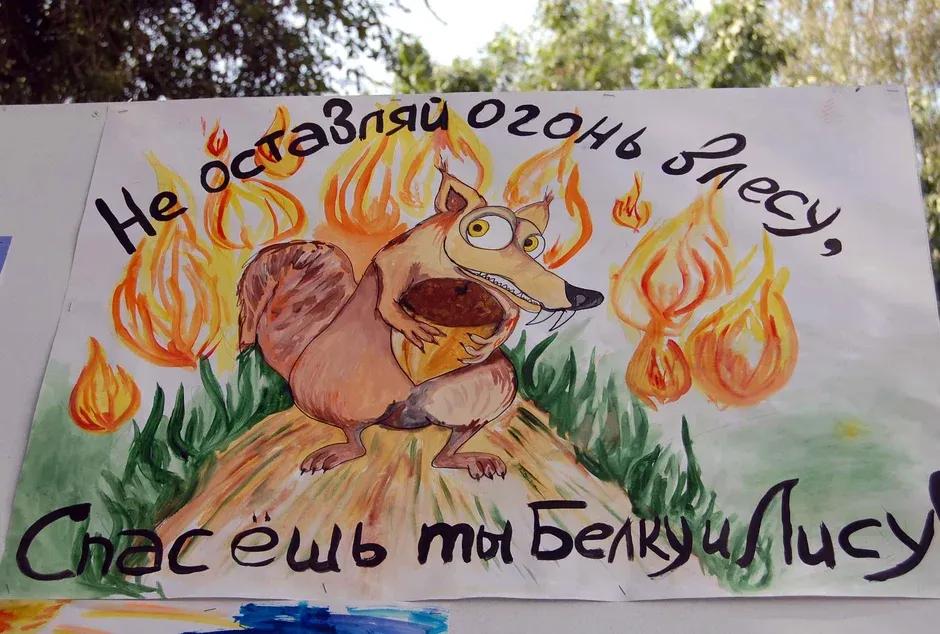 Не оставляй огонь в лесу,
Спасёшь ты Белку и Лису!